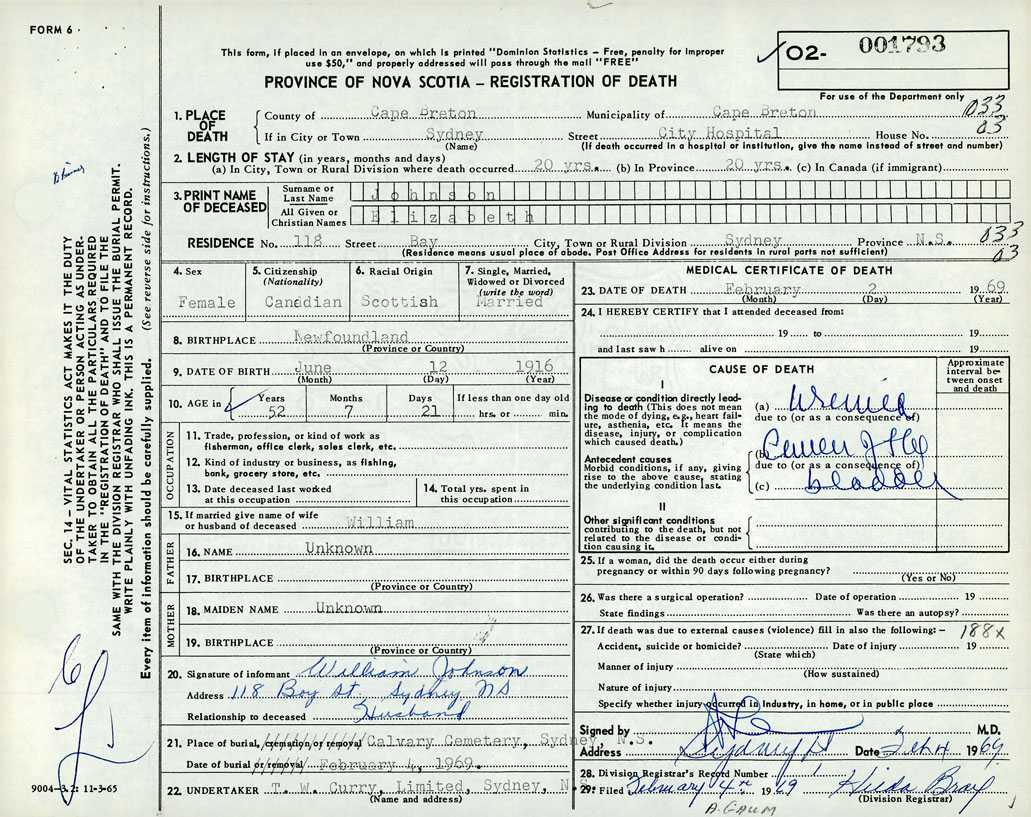 FORM 6
This form, if placed in an envelope, on which is printed "Dominion Statistics – Free, penalty for improper
use $50," and properly addressed will pass through the mail "FREE"
PROVINCE OF NOVA SCOTIA – REGISTRATION OF DEATH
✓ 02- 001793
For use of the Department only
033
03
1. PLACE OF DEATH
County of Cape Breton Municipality of Cape Breton
If in City or Town Sydney Street City Hospital House No.
(Name) (If death occurred in a hospital or institution, give the name instead of street and number)
2. LENGTH OF STAY (in years, months and days)
(a) In City, Town or Rural Division where death occurred 20 yrs. (b) In Province 20 yrs. (c) In Canada (if immigrant)
3. PRINT NAME OF DECEASED
Surname or Last Name Johnson
All Given or Christian Names Elizabeth
RESIDENCE No. 118 Street Bay City, Town or Rural Division Sydney Province N.S. 033
03
(Residence means usual place of abode. Post Office Address for residents in rural parts not sufficient)
4. Sex
Female
5. Citizenship
(Nationality)
Canadian
6. Racial Origin
Scottish
7. Single, Married,
Widowed or Divorced
(write the word)
Married
8. BIRTHPLACE Newfoundland
(Province or Country)
9. DATE OF BIRTH June 12 1916
(Month) (Day) (Year)
10. AGE in ✓ Years Months Days If less than one day old
52 7 21 hrs. or min.
OCCUPATION
11. Trade, profession, or kind of work as
fisherman, office clerk, sales clerk, etc.
12. Kind of industry or business, as fishing,
bank, grocery store, etc.
13. Date deceased last worked
at this occupation
14. Total yrs. spent in
this occupation
15. If married give name of wife
or husband of deceased William
FATHER
16. NAME Unknown
17. BIRTHPLACE
(Province or Country)
MOTHER
18. MAIDEN NAME Unknown
19. BIRTHPLACE
(Province or Country)
20. Signature of informant William Johnson
Address 118 Bay St. Sydney NS
Relationship to deceased Husband
21. Place of burial, cremation or removal Calvary Cemetery, Sydney N.S.
Date of burial or removal February 4, 1969.
22. UNDERTAKER T. W. Curry, Limited, Sydney, N.S.
(Name and address)
MEDICAL CERTIFICATE OF DEATH
23. DATE OF DEATH February 2 1969
(Month) (Day) (Year)
24. I HEREBY CERTIFY that I attended deceased from:
19 to 19
and last saw h alive on 19
CAUSE OF DEATH
Approximate
interval be-
tween onset
and death
I
Disease or condition directly lead-
ing to death (This does not mean
the mode of dying, e.g., heart fail-
ure, asthenia, etc. It means the
disease, injury, or complication
which caused death.)
(a) Uremia
due to (or as a consequence of)
Antecedent causes
Morbid conditions, if any, giving
rise to the above cause, stating
the underlying condition last.
(b)
due to (or as a consequence of)
(c) bladder
II
Other significant conditions
contributing to the death, but not
related to the disease or condi-
tion causing it.
25. If a woman, did the death occur either during
pregnancy or within 90 days following pregnancy?
(Yes or No)
26. Was there a surgical operation? Date of operation 19
State findings Was there an autopsy?
27. If death was due to external causes (violence) fill in also the following: – 188x
Accident, suicide or homicide? Date of injury 19
(State which)
Manner of injury
(How sustained)
Nature of injury
Specify whether injury occurred in industry, in home, or in public place
Signed by M.D.
Address Sydney Date Feb 4 1969
28. Division Registrar's Record Number
29. Filed February 4 19 Hilda Bray
(Division Registrar)
SEC. 14 – VITAL STATISTICS ACT MAKES IT THE DUTY
OF THE UNDERTAKER OR PERSON ACTING AS UNDER-
TAKER TO OBTAIN ALL THE PARTICULARS REQUIRED
IN THE "REGISTRATION OF DEATH" AND TO FILE THE
SAME WITH THE DIVISION REGISTRAR WHO SHALL ISSUE THE BURIAL PERMIT.
WRITE PLAINLY WITH UNFADING INK. THIS IS A PERMANENT RECORD.
Every item of information should be carefully supplied. (See reverse side for instructions.)
9004-3.2: 11-3-65